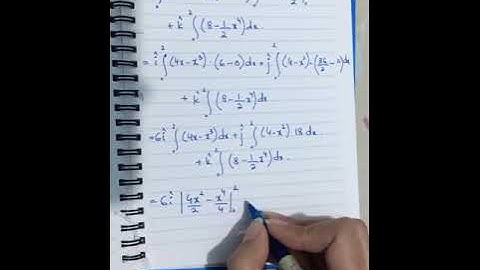 + k̂ ∫₀² (8 - ½x⁴) dx.
= î ∫₀² (4x - x³) · (6 - 0) dx + ĵ ∫₀² (4 - x²) · (36/2 - 0) dx
+ k̂ ∫₀² (8 - ½x⁴) dx
= 6î ∫₀² (4x - x³) dx + ĵ ∫₀² (4 - x²) · 18 dx.
+ k̂ ∫₀² (8 - ½x⁴) dx.
= 6î |4x²/2 - x⁴/4|₀²